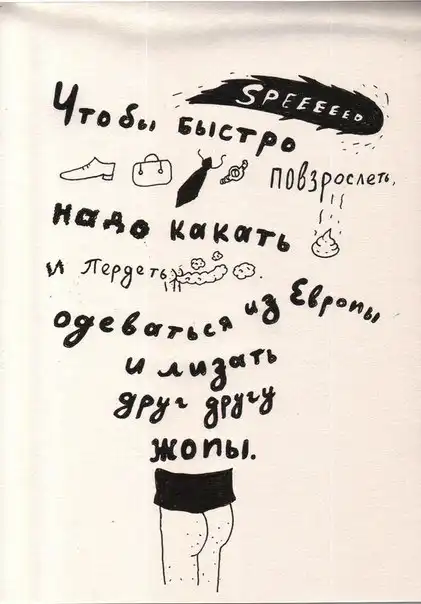 SPEEEEED
Чтобы быстро
повзрослеть,
надо какать
и пердеть,
одеваться из Европы
и лизать
друг другу
жопы.